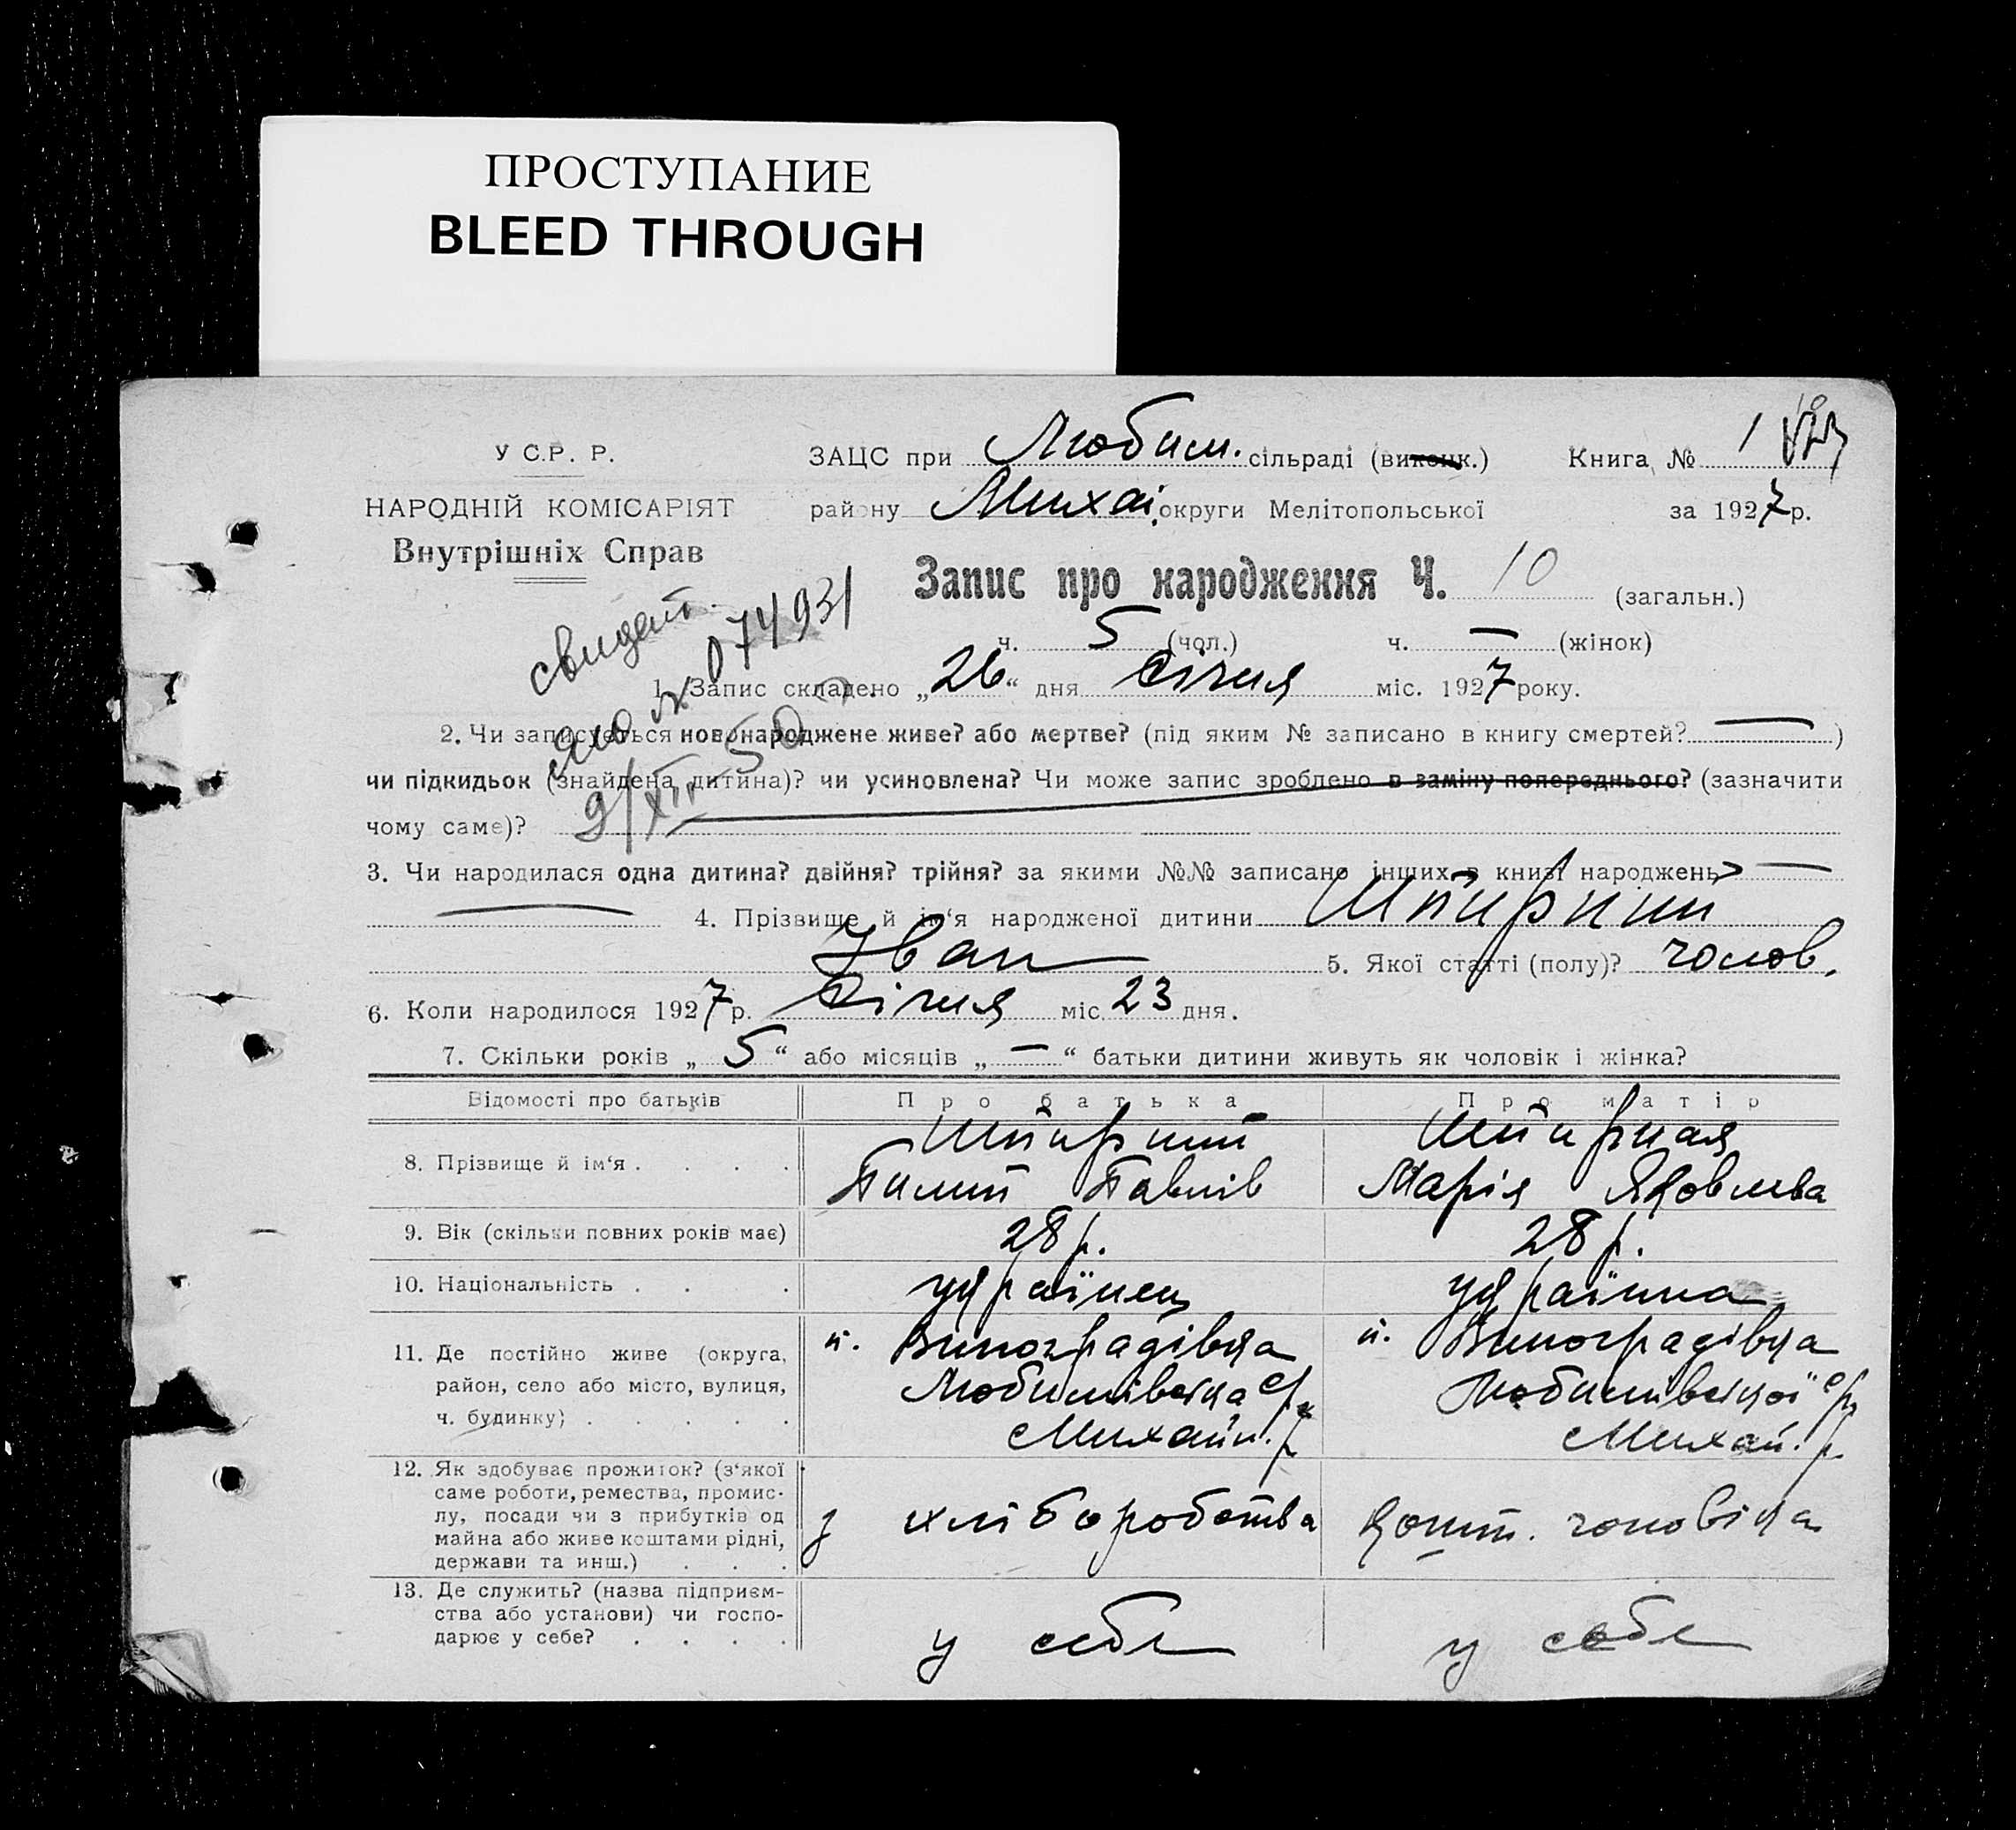 ПРОСТУПАНИЕ
BLEED THROUGH
У С.Р. Р.
НАРОДНІЙ КОМІСАРІЯТ
Внутрішніх Справ
ЗАЦС при Любим. сільраді (виконк.) Книга № 1
району Михай. округи Мелітопольської за 1927 р.
Запис про народження Ч. 10 (загальн.)
ч. 5 (чол.) ч. — (жінок)
свидет.
№ 074931
9/XII 50
1. Запис складено „26“ дня січня міс. 1927 року.
2. Чи записується новонароджене живе? або мертве? (під яким № записано в книгу смертей? —)
чи підкидьок (знайдена дитина)? чи усиновлена? Чи може запис зроблено в заміну попереднього? (зазначити
чому саме)?
3. Чи народилася одна дитина? двійня? трійня? за якими №№ записано інших в книзі народжень? —
— 4. Прізвище й ім‘я народженої дитини
Іван 5. Якої статті (полу)? чолов.
6. Коли народилося 1927 р. Січня міс. 23 дня.
7. Скільки років „5“ або місяців „—“ батьки дитини живуть як чоловік і жінка?
Відомості про батьків Про батька Про матір
8. Прізвище й ім‘я . . . .
Павлів Марія Яковлева
9. Вік (скільки повних років має) 28 р. 28 р.
10. Національність . . . українец українка
11. Де постійно живе (округа, район, село або місто, вулиця, ч. будинку) . . . . .
п. Виноградівка п. Виноградівка
Любимівська с/р Любимівської с/р
Михайл. р. Михай. р.
12. Як здобуває прожиток? (з‘якої
саме роботи, ремества, промис-
лу, посади чи з прибутків од
майна або живе коштами рідні,
держави та инш.) . . .
з хліборобства кошт. чоловіка
13. Де служить? (назва підприєм-
ства або установи) чи госпо-
дарює у себе? . . . .
у себе у себе